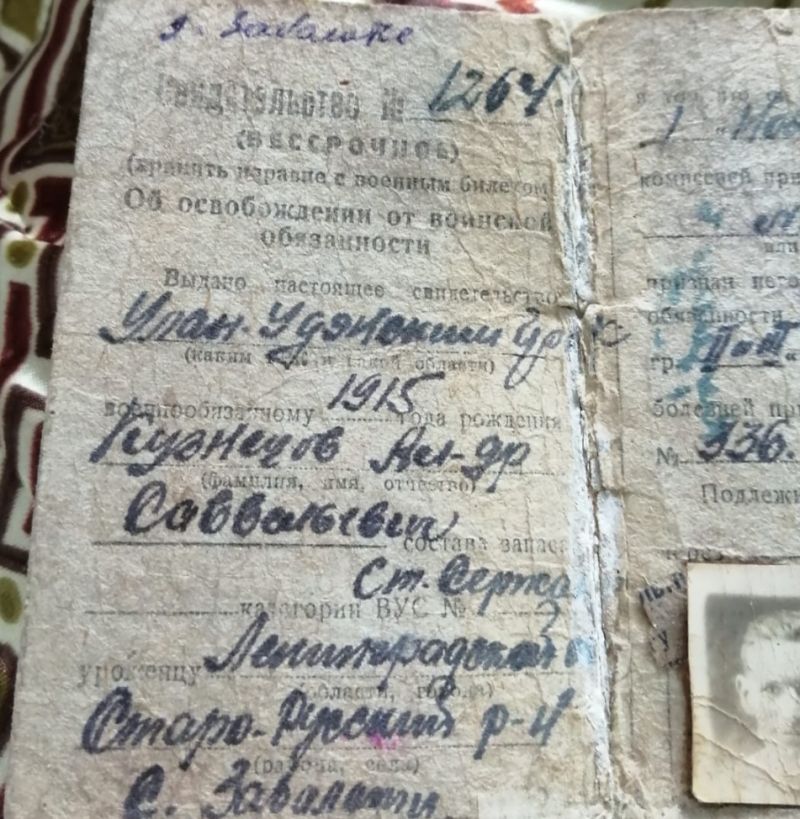 д. Завалоке
Свидетельство № 1264.
(БЕССРОЧНОЕ)
(хранить наравне с военным билетом
Об освобождении от воинской
обязанности
Выдано настоящее свидетельство
Улан-Удэнским
области)
военнообязанному 1915 года рождения
Кузнецов Ал-др
(фамилия, имя, отчество)
состава запаса
Ст.
категории ВУС №
уроженцу Ленинградской
(области, города)
Старо-Русский р-н
(района, села)
С.
1
комиссией
или
признан
обязанности
гр.
болезней
№ 336.
Подлеж